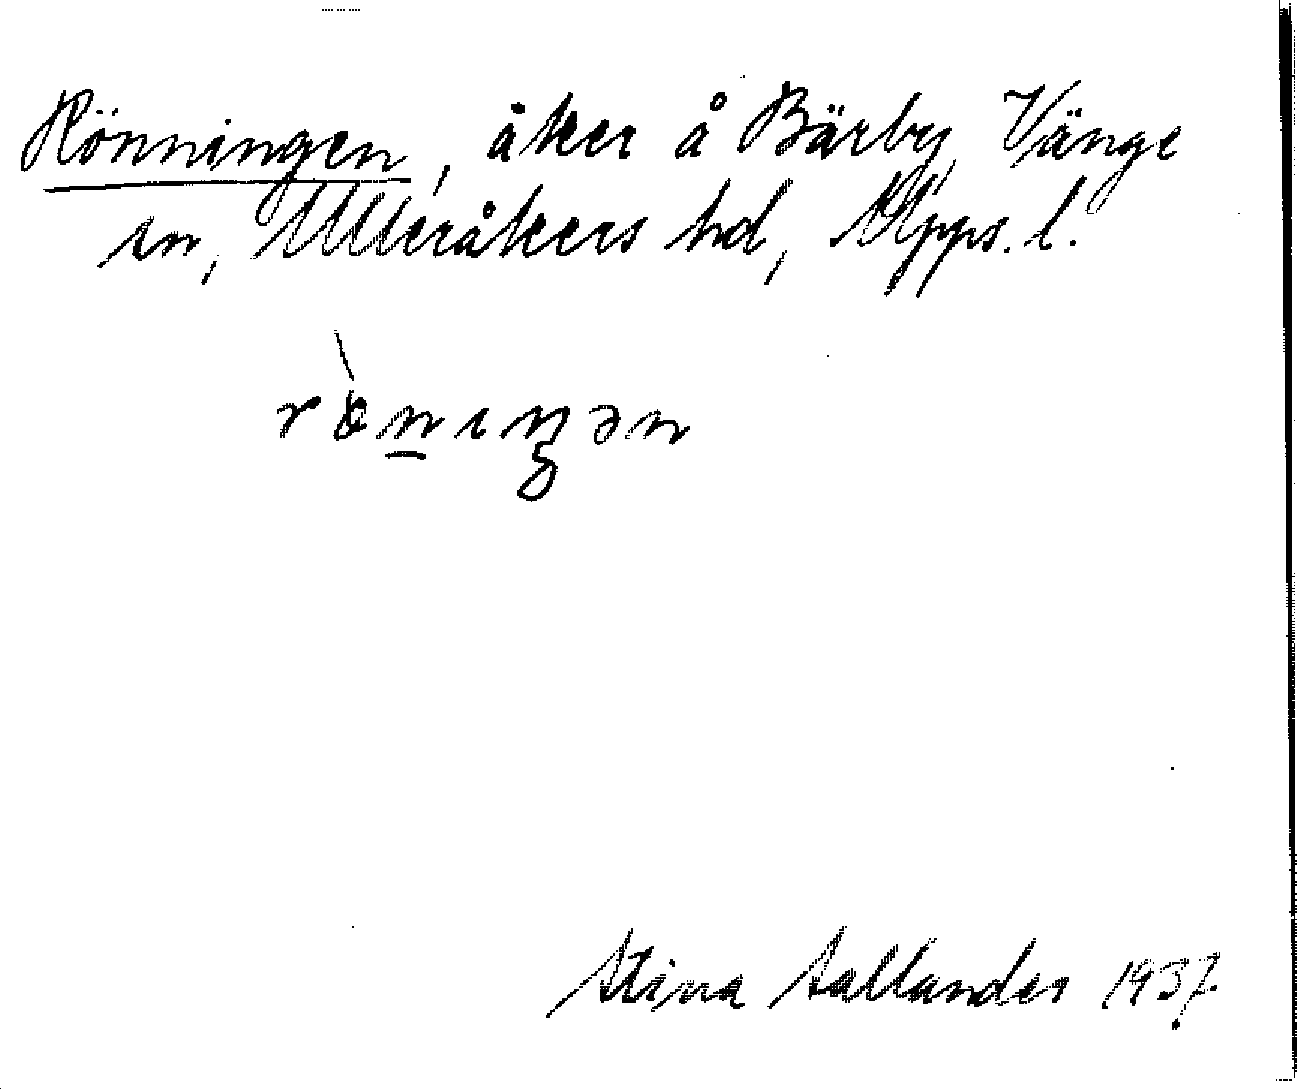 Rönningen, åker å Bärby, Vänge
sn, Ulleråkers hd, Upps. l.
rö̀n̲ıŋən
Stina Sallander 1937.